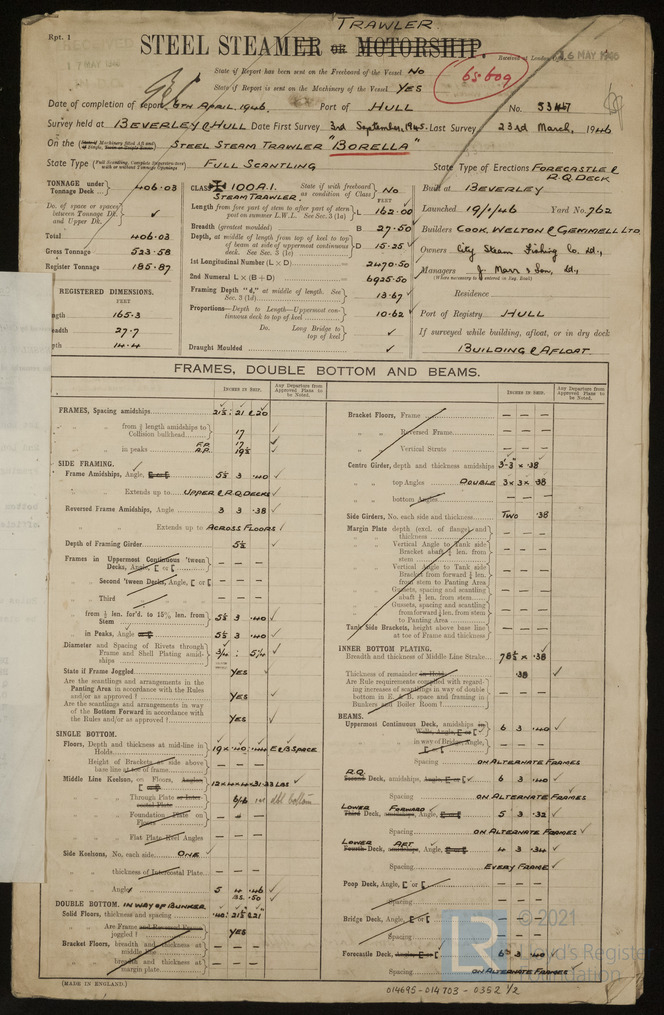 Rpt. 1
TRAWLER
STEEL STEAMER OR MOTORSHIP.
Received at London Office 16 MAY 1946
State if Report has been sent on the Freeboard of the Vessel No
State if Report is sent on the Machinery of the Vessel YES
65609
Date of completion of report 6TH APRIL, 1946. Port of HULL No. 53447
Survey held at BEVERLEY & HULL Date First Survey 3rd September, 1945. Last Survey 23rd March, 1946
On the STEEL STEAM TRAWLER "BORELLA"
State Type FULL SCANTLING State Type of Erections FORECASTLE & R.Q. DECK
TONNAGE under Tonnage Deck 406.03
Do. of space or spaces between Tonnage Dk. and Upper Dk. ✓
Total 406.03
Gross Tonnage 523.58
Register Tonnage 185.87
REGISTERED DIMENSIONS.
FEET
ngth 165.3
eadth 27.7
pth 14.4
CLASS ✠ 100 A.1. STEAM TRAWLER. State if with freeboard as condition of Class No
FEET
Length from fore part of stem to after part of stern post on summer L.W.L. See Sec. 3 (1a) L 162.00
Breadth (greatest moulded) B 27.50
Depth, at middle of length from top of keel to top of beam at side of uppermost continuous deck. See Sec. 3 (1c) D 15.25
1st Longitudinal Number (L × D) 2470.50
2nd Numeral L × (B + D) 6925.50
Framing Depth "d," at middle of length. See Sec. 3 (1d) 13.67
Proportions—Depth to Length—Uppermost continuous deck to top of keel 10.62
Do. Long Bridge to top of keel ✓
Draught Moulded ✓
Built at BEVERLEY
Launched 19/1/46 Yard No. 762
Builders COOK, WELTON & GEMMELL LTD
Owners City Steam Fishing Co. Ltd.,
Managers J. Marr & Son, Ltd.,
Residence
Port of Registry HULL
If surveyed while building, afloat, or in dry dock
BUILDING & AFLOAT
FRAMES, DOUBLE BOTTOM AND BEAMS.
INCHES IN SHIP. Any Departures from Approved Plans to be Noted.
FRAMES, Spacing amidships 21½ : 21 & 20
" " from ⅗ length amidships to Collision bulkhead 17
" " in peaks F.P. 17 A.P. 19½
SIDE FRAMING.
Frame Amidships, Angle, 5½ 3 .40 ✓
" " Extends up to UPPER & R.Q. DECKS ✓
Reversed Frame Amidships, Angle 3 3 .38
" " " Extends up to ACROSS FLOORS ✓
Depth of Framing Girder 5½
Frames in Uppermost Continuous 'tween Decks, Angle, [ or [ — — —
" Second 'tween Decks, Angle, [ or [ — — —
" Third " " " — — —
" from ⅗ len. for'd. to 15% len. from Stem 5½ 3 .40 ✓
" in Peaks, Angle 5½ 3 .40 ✓
Diameter and Spacing of Rivets through Frame and Shell Plating amidships ¾ : 5¼ ✓
State if Frame Joggled YES
Are the scantlings and arrangements in the Panting Area in accordance with the Rules and/or as approved? YES ✓
Are the scantlings and arrangements in way of the Bottom Forward in accordance with the Rules and/or as approved? YES ✓
SINGLE BOTTOM.
Floors, Depth and thickness at mid-line in Holds 19 × .40 : .44 E & B SPACE
" Height of Brackets at side above base line at toe of frame — — —
Middle Line Keelson, on Floors, Angles
" " Through Plate or Intercostal Plate dbl bottom
" " Foundation Plate on Floors
" " Flat Plate Keel Angles
Side Keelsons, No. each side ONE ✓
" " thickness of Intercostal Plate
" " Angles 5 4 .46 ✓
DOUBLE BOTTOM. IN WAY OF BUNKER
Solid Floors, thickness and spacing .40 : 21½ & 21
" " Are Frame and Reversed Frame joggled? YES
Bracket Floors, breadth and thickness at middle line — — —
" " breadth and thickness at margin plate — — —
(MADE IN ENGLAND.)
INCHES IN SHIP. Any Departures from Approved Plans to be Noted.
Bracket Floors, Frame — — —
" " Reversed Frame — — —
" " Vertical Struts — — —
Centre Girder, depth and thickness amidships 3'-3" × .38
" " top Angles DOUBLE 3 × 3 × .38
" " bottom Angles — — —
Side Girders, No. each side and thickness TWO .38
Margin Plate depth (excl. of flange) and thickness — — —
" " Vertical Angle to Tank side Bracket abaft ¼ len. from stem — — —
" " Vertical Angle to Tank side Bracket from forward ¼ len. from stem to Panting Area — — —
" " Gussets, spacing and scantling abaft ¼ len. from stem — — —
" " Gussets, spacing and scantling from forward ¼ len. from stem to Panting Area — — —
Tank Side Brackets, height above base line at toe of Frame and thickness — — —
INNER BOTTOM PLATING.
Breadth and thickness of Middle Line Strake 78½ × .38
Thickness of remainder in Hold .38 ✓
Are Rule requirements complied with regarding increases of scantlings in way of double bottom in E. & B. space and framing in Bunkers and Boiler Room?
BEAMS.
Uppermost Continuous Deck, amidships in Wells, Angle, [ or [ 6 3 .40 ✓
" " in way of Bridge, Angle, [ or [ — — —
" " Spacing ON ALTERNATE FRAMES
R.Q.
Second Deck, amidships, Angle, [ or [ 6 3 .40 ✓
" " Spacing ON ALTERNATE FRAMES
LOWER FORWARD
Third Deck, amidships, Angle, 5 3 .32
" " Spacing ON ALTERNATE FRAMES ✓
LOWER AFT
Fourth Deck, amidships, Angle, 4 3 .34
" " Spacing EVERY FRAME ✓
Poop Deck, Angle, [ or [ — — —
" " Spacing
Bridge Deck, Angle, [ or [ — — —
" " Spacing
Forecastle Deck, Angle, [ or [ 6 3 .40
" " Spacing ON ALTERNATE FRAMES
LR
© 2021
Lloyd's Register
Foundation
014695-014703-0352 1/2